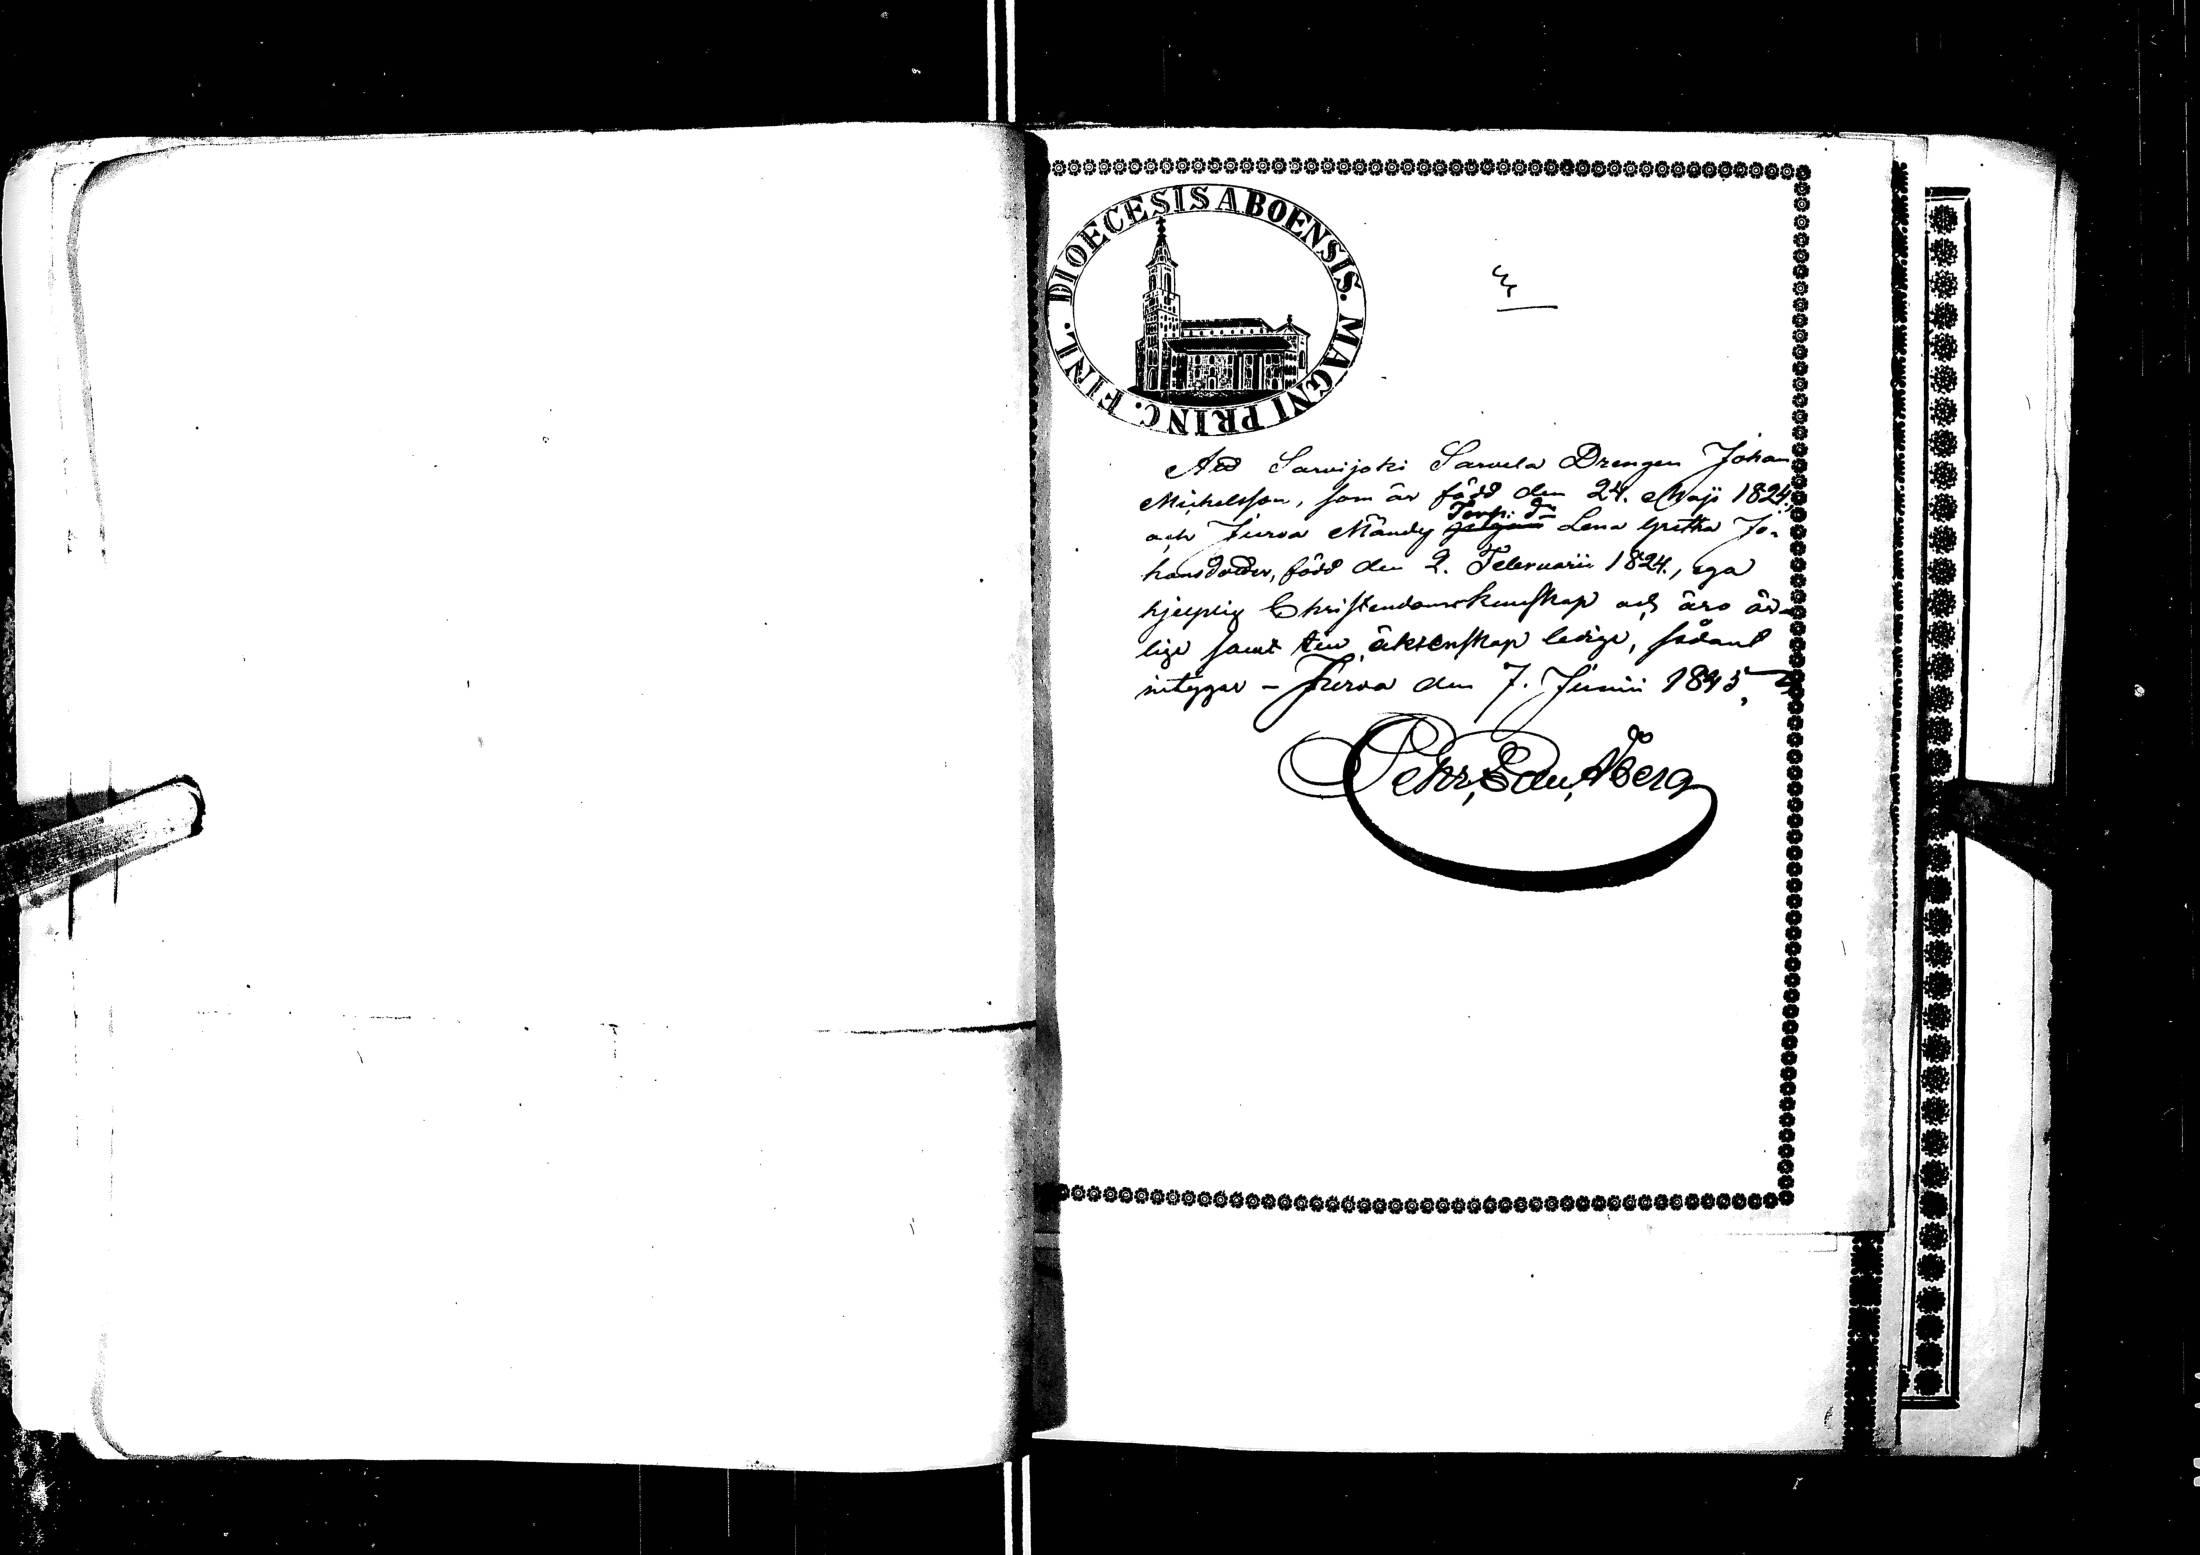 DIOECESIS ABOENSIS. MAGNI PRINC. FINL.
Att Sarvijoki Sarvela Drengen Johan
Michelsson, som är född den 24. Maji 1824,
och Jurva Mändy Torp: dr Lena Gretha Jo-
hansdotter, född den 2. Februarii 1824., ega
hjelplig Christendomskunskap och äro är-
lige samt till äktenskap ledige, sådant
intygar - Jurva den 7. Junii 1845,
Pehr, Edu, Åberg